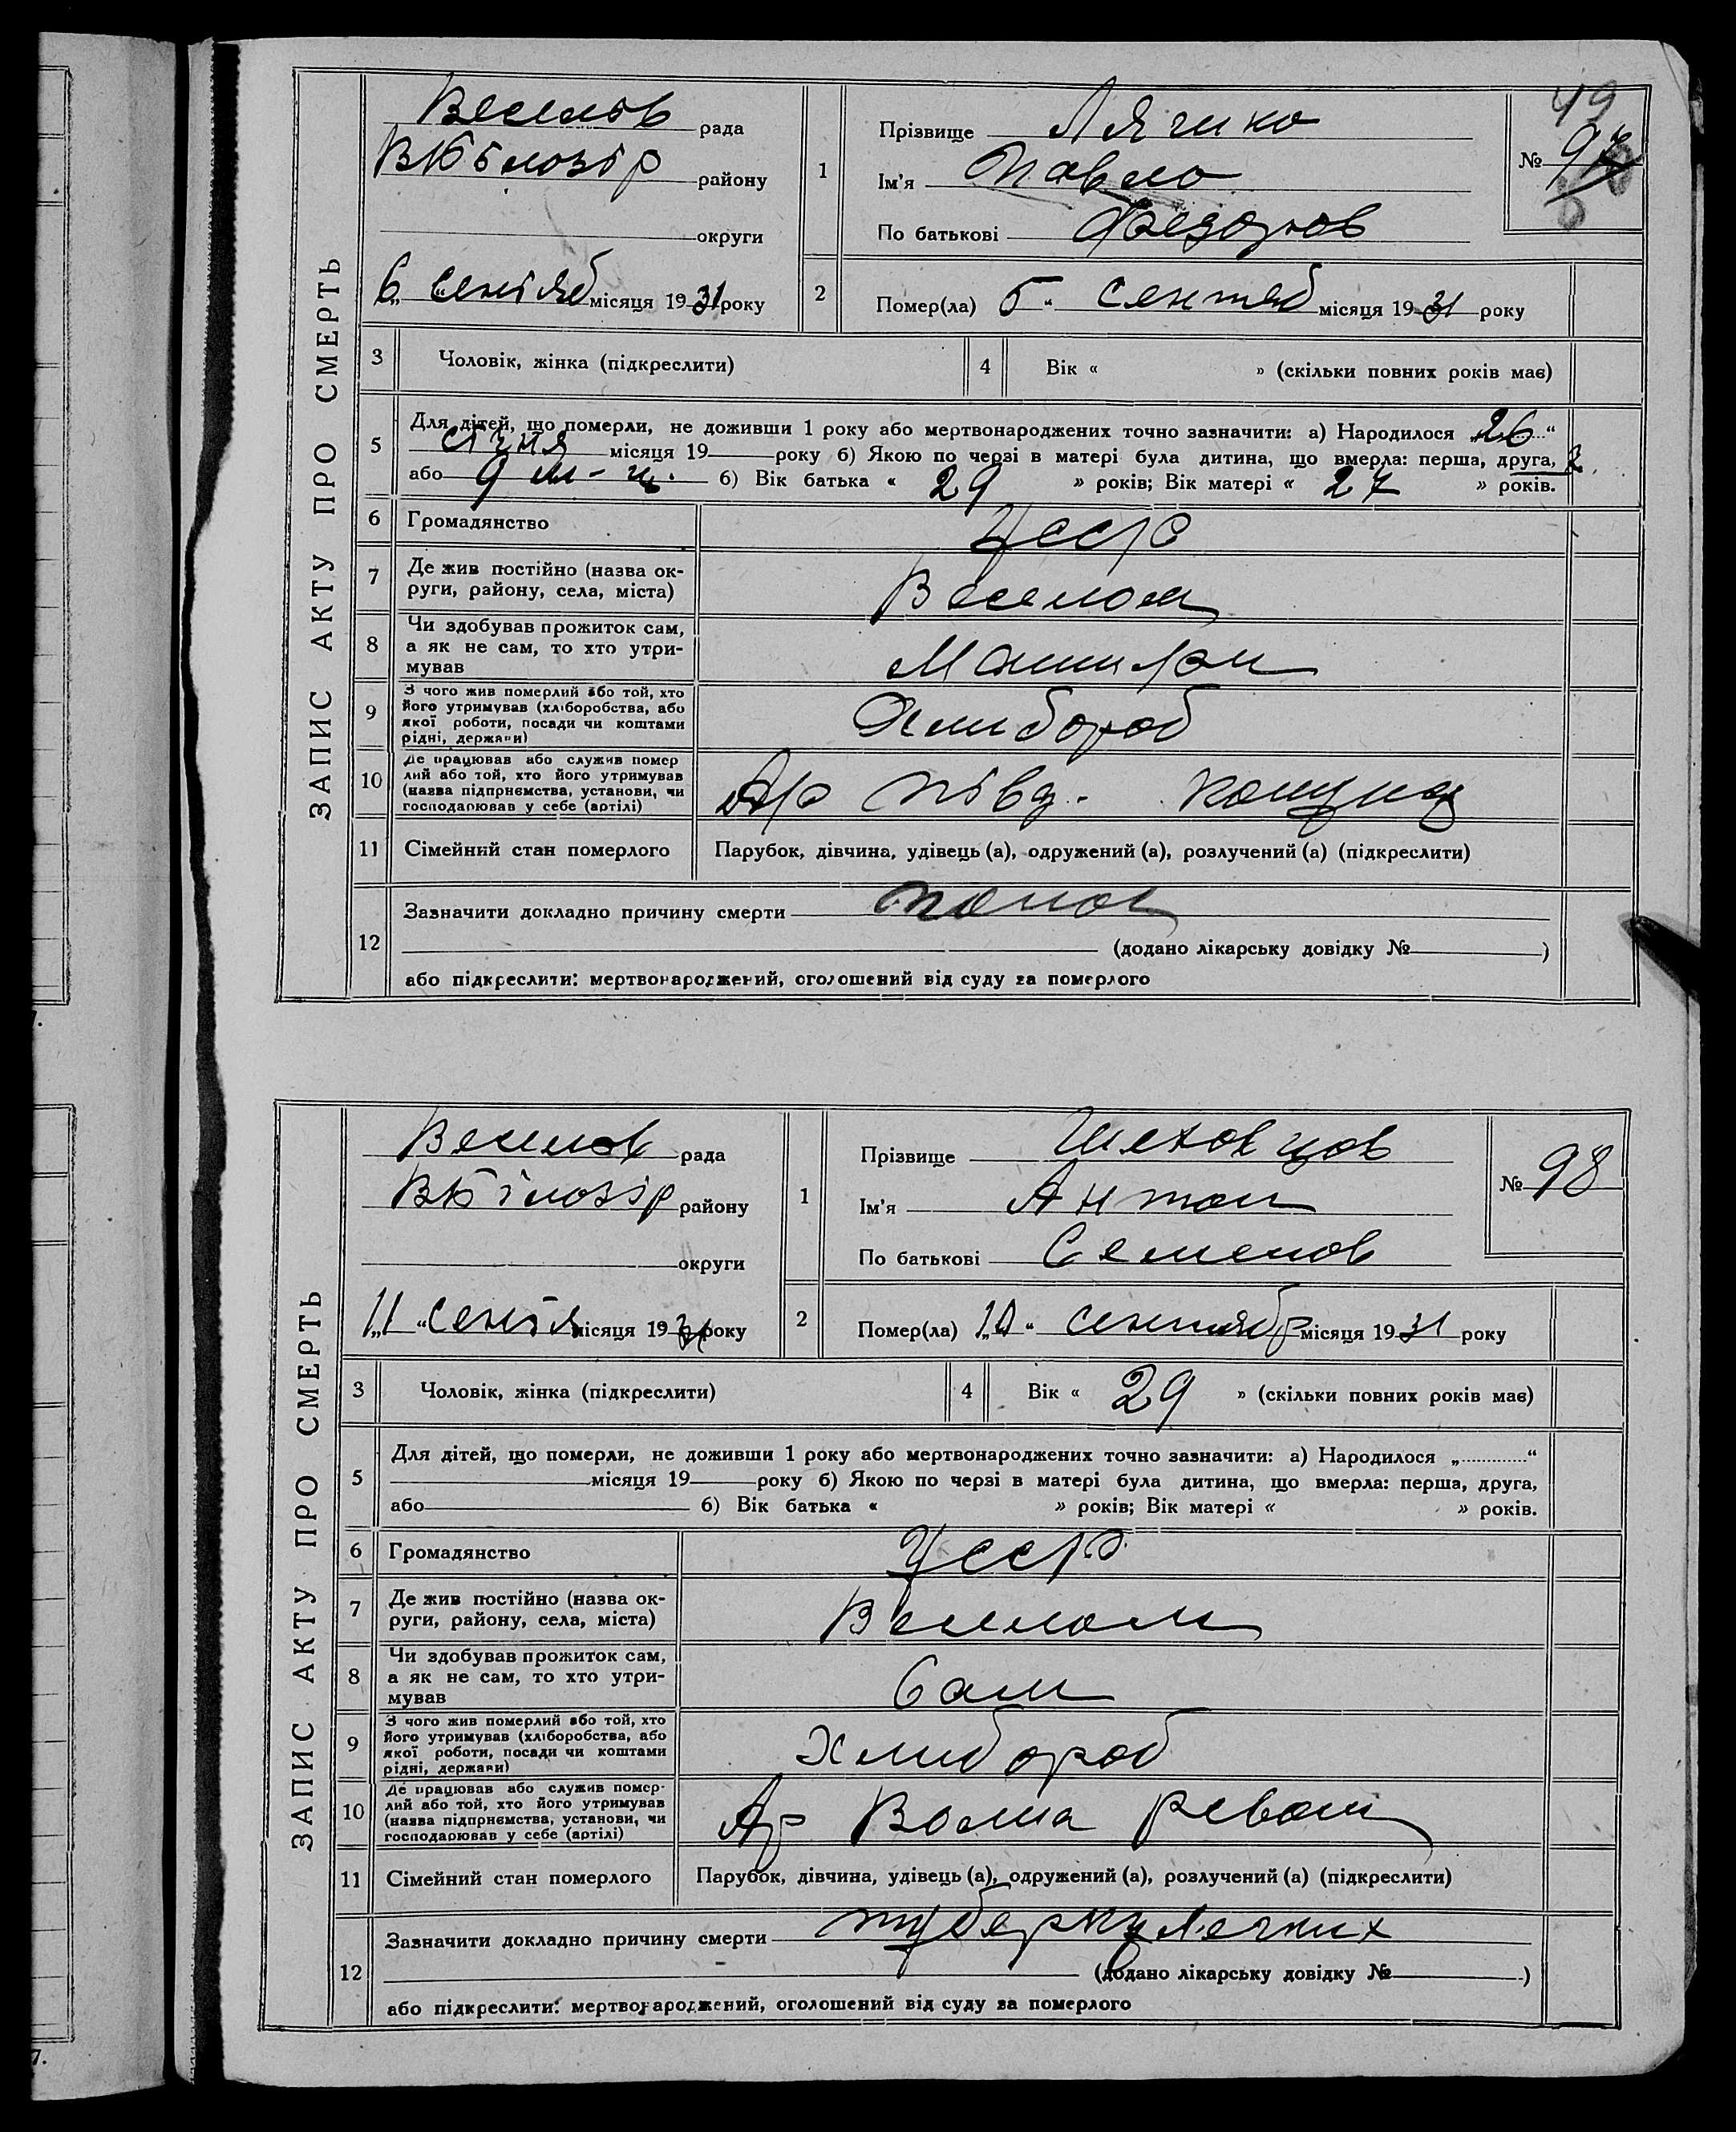 49
ЗАПИС АКТУ ПРО СМЕРТЬ
Веселов рада
ВБілозір району
округи
6 Сентяб місяця 1931 року
1
Прізвище Лячко
Ім'я Павло
По батькові Федоров
№ 97
2
Помер(ла) 5 „ Сентяб місяця 1931 року
3 Чоловік, жінка (підкреслити)
4 Вік « » (скільки повних років має)
5 Для дітей, що померли, не доживши 1 року або мертвонароджених точно зазначити: а) Народилося „26“
січня місяця 19 року б) Якою по черзі в матері була дитина, що вмерла: перша, друга,
або 9 м-ц. б) Вік батька « 29 » років; Вік матері « 27 » років.
6 Громадянство Усср
7 Де жив постійно (назва ок-
руги, району, села, міста) Веселом
8 Чи здобував прожиток сам,
а як не сам, то хто утри-
мував
9 З чого жив померлий або той, хто
його утримував (хліборобства, або
якої роботи, посади чи коштами
рідні, держави) Хлибороб
10 Де працював або служив помер
лий або той, хто його утримував
(назва підприємства, установи, чи
господарював у себе (артілі) Ар півд.
11 Сімейний стан померлого Парубок, дівчина, удівець (а), одружений (а), розлучений (а) (підкреслити)
12 Зазначити докладно причину смерти понос
(додано лікарську довідку № )
або підкреслити: мертвонароджений, оголошений від суду за померлого
ЗАПИС АКТУ ПРО СМЕРТЬ
Веселов рада
ВБілозір району
округи
„11“ Сентя місяця 1931 року
1
Прізвище Шеховцов
Ім'я Антон
По батькові Семенов
№ 98
2
Помер(ла) „10“ сентябр місяця 1931 року
3 Чоловік, жінка (підкреслити)
4 Вік « 29 » (скільки повних років має)
5 Для дітей, що померли, не доживши 1 року або мертвонароджених точно зазначити: а) Народилося „ “
місяця 19 року б) Якою по черзі в матері була дитина, що вмерла: перша, друга,
або б) Вік батька « » років; Вік матері « » років.
6 Громадянство Усср
7 Де жив постійно (назва ок-
руги, району, села, міста) Веселом
8 Чи здобував прожиток сам,
а як не сам, то хто утри-
мував Сам
9 З чого жив померлий або той, хто
його утримував (хліборобства, або
якої роботи, посади чи коштами
рідні, держави) Хлибороб
10 Де працював або служив помер-
лий або той, хто його утримував
(назва підприємства, установи, чи
господарював у себе (артілі) Ар Волна Револ
11 Сімейний стан померлого Парубок, дівчина, удівець (а), одружений (а), розлучений (а) (підкреслити)
12 Зазначити докладно причину смерти туберкулегких
(додано лікарську довідку № )
або підкреслити: мертвонароджений, оголошений від суду за померлого